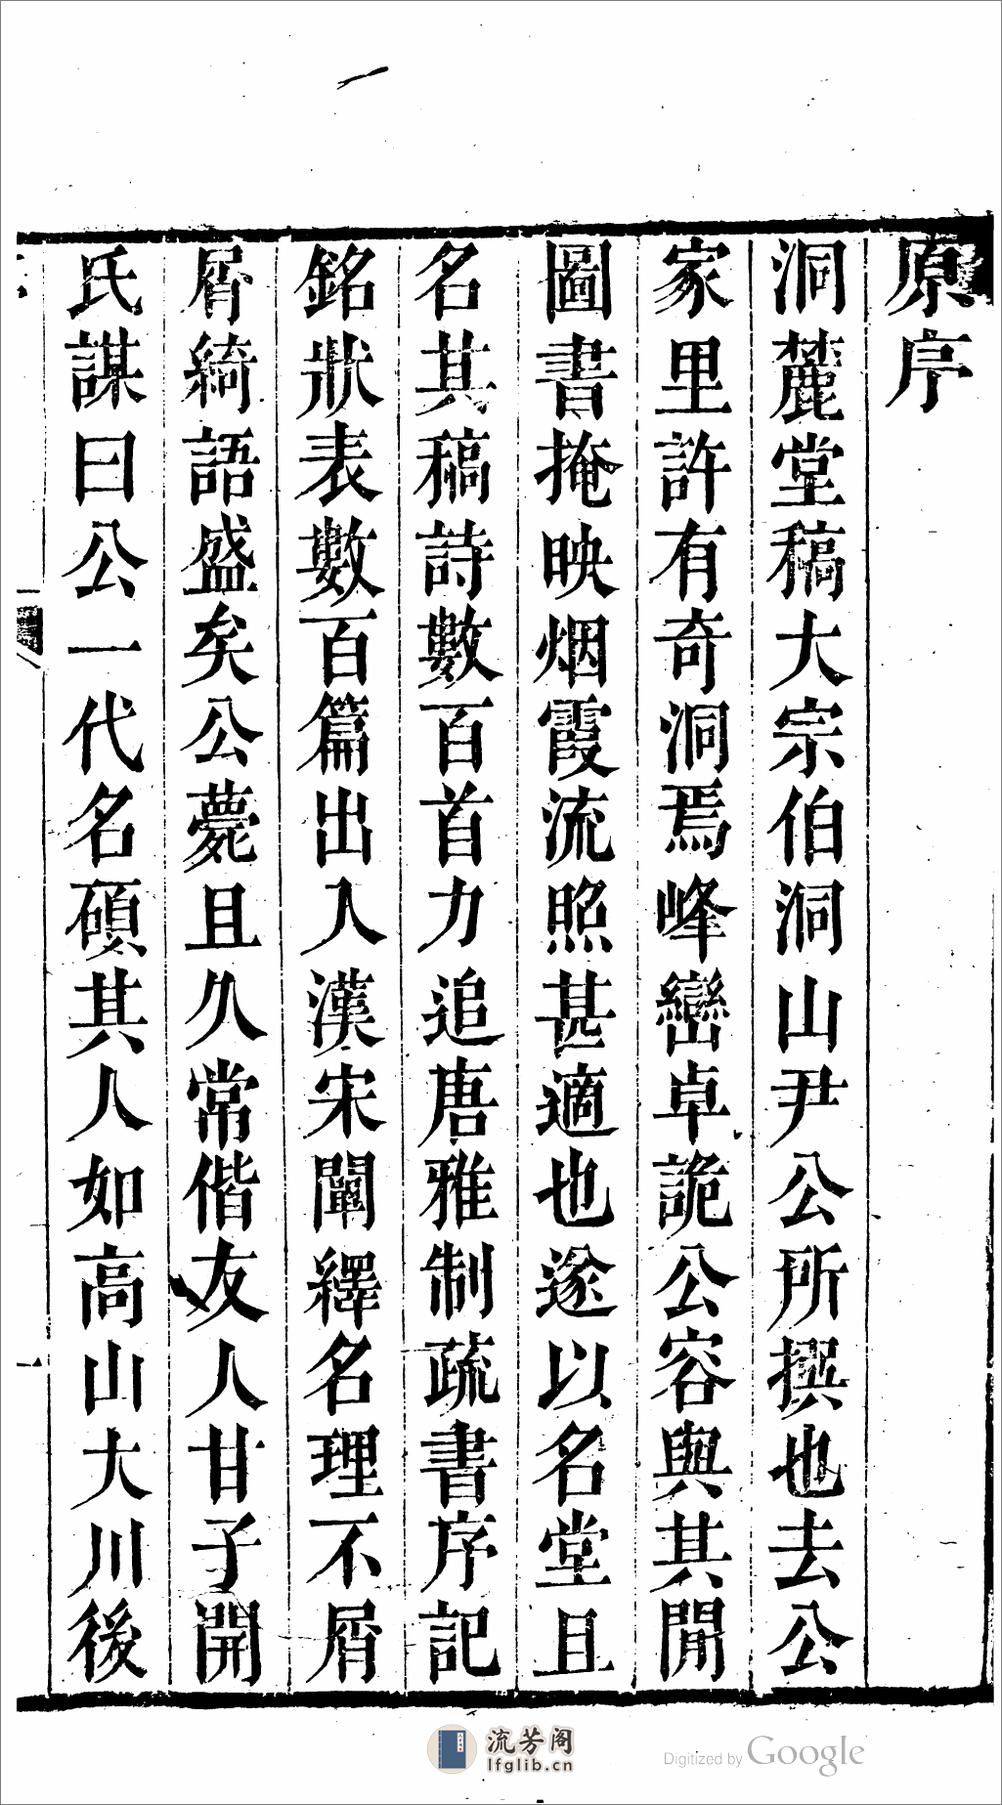 原序
洞麓堂稿大宗伯洞山尹公所撰也去公
家里許有奇洞焉峰巒卓詭公容與其閒
圖書掩映烟霞流照甚適也遂以名堂且
名其稿詩數百首力追唐雅制疏書序記
銘狀表數百篇出入漢宋闡繹名理不屑
屑綺語盛矣公薨且久常偕友人甘子開
氏謀曰公一代名碩其人如高山大川後
流芳阁
lfglib.cn
Digitized by Google